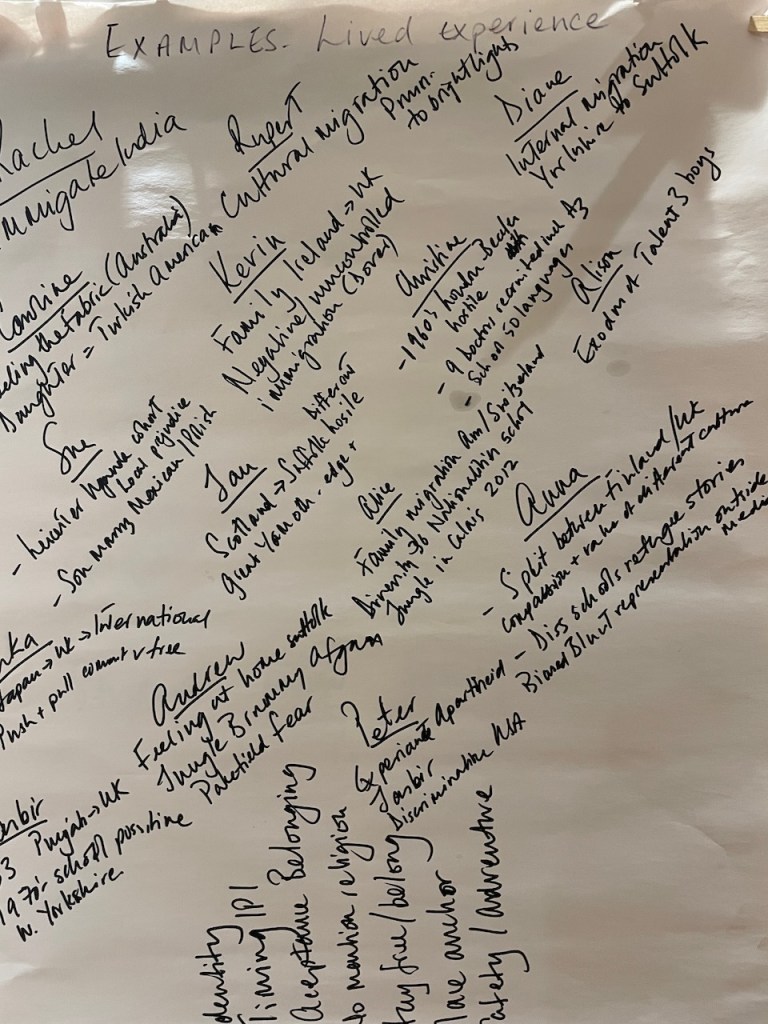 EXAMPLES. Lived experience
Rachel
India
Rupert
Cultural migration
to bright lights
Diane
Internal migration
Yorkshire to Suffolk
Caroline
the Fabric (Australia)
Daughter = Turkish American
Kevin
Family Ireland → UK
Negative/uncontrolled
immigration (Dover)
Christine
- 1960's London
hostile
- 9 doctors recruited
- School 50 languages
Alison
Exodus of Talent 3 boys
Sue
- Leicester Uganda cohort
Local prejudice
- Son marry Mexican/Polish
Ian
different
Scotland → Suffolk hostile
Great Yarmouth - edge +
Family migration Switzerland
Diversity 36 Nationalities in school
Jungle in Calais 2012
Anna
- Split between Finland/UK
compassion + value of different culture
- Diss schools refugee stories
Biased Blunt representation outside
media
Japan → UK → International
Push + pull free
Andrew
Feeling at home Suffolk
Jungle
fear
Peter
Experience Apartheid
Jasbir
Discrimination USA
Punjab → UK
1970's school positive
W. Yorkshire
Identity
Timing IPI
Acceptance Belonging
No mention religion
Stay free/belong
anchor
Safety/adventure